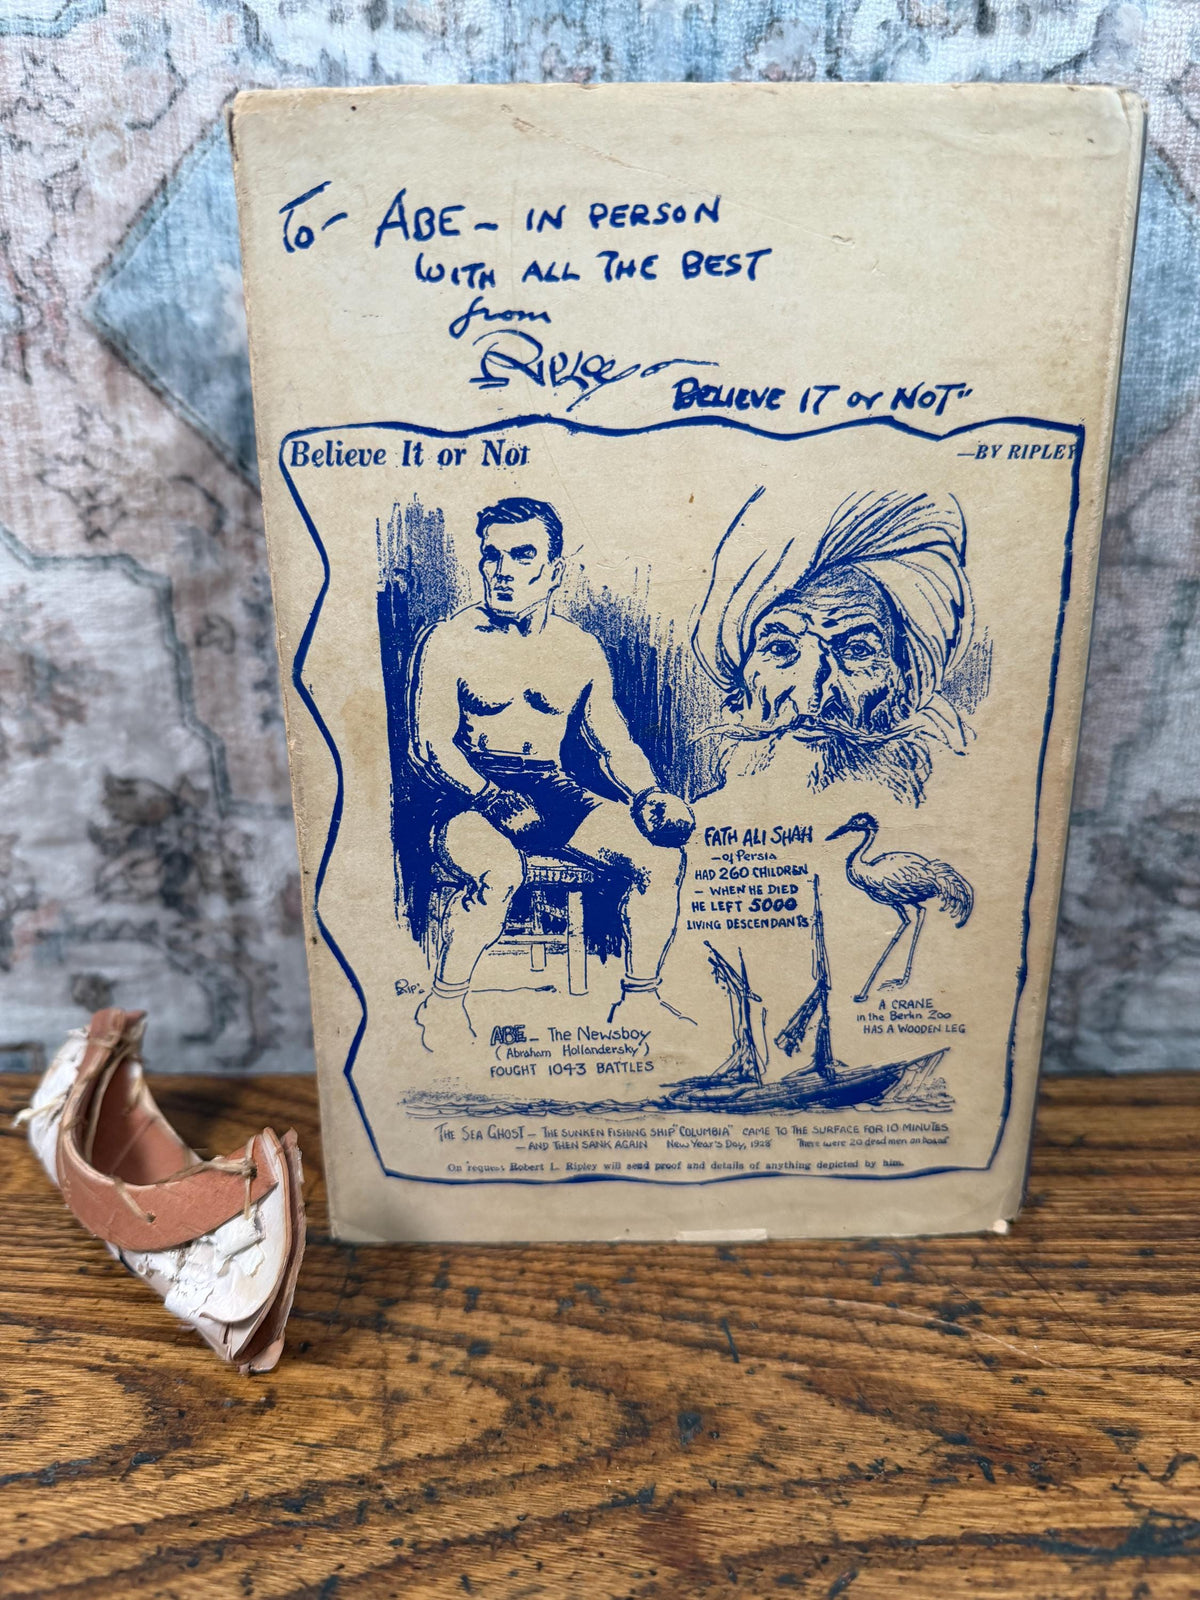 To- ABE - IN PERSON
WITH ALL THE BEST
from
RIPLEY -
BELIEVE IT or NOT"
Believe It or Not
—BY RIPLEY
FATH ALI SHAH
- of Persia
HAD 260 CHILDREN
- WHEN HE DIED
HE LEFT 5000
LIVING DESCENDANTS
Rip.
A CRANE
in the Berlin Zoo
HAS A WOODEN LEG
ABE - The Newsboy
(Abraham Hollandersky)
FOUGHT 1043 BATTLES
THE SEA GHOST - THE SUNKEN FISHING SHIP "COLUMBIA" CAME TO THE SURFACE FOR 10 MINUTES
- AND THEN SANK AGAIN New Year's Day, 1928 "There were 20 dead men on board"
On request Robert L. Ripley will send proof and details of anything depicted by him.